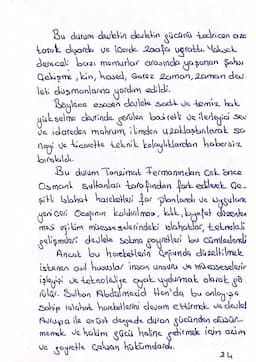 Bu durum devletin devletin gücünü tedricen aza
tarak dışarda ve içerde zaafa uğrattı. Yüksek
dereceli bazı memurlar arasında yaşanan şahsi
çekişme, kin, hased, garez zaman, zaman dev
let düşmanlarına yardım edildi.
Böylece esasen devlete sadık ve temiz halk
yükselme devrinde görülen basiretli ve ilerleyici sev
k ve idareden mahrum ilimden uzaklaştırılarak sa
nayi ve ticarette teknik kolaylıklardan habersiz
bırakıldı.
Bu durum Tanzimat Fermanından çok önce
Osmanlı sultanları tarafından fark edilerek çe
şitli ıslahat hareketleri for planlandı ve uygulana
yeniçeri Ocağının kaldırılması, kılık, kıyafet düzenlen
mesi eğitim müesseselerindeki ıslahatlar, teknoloji
gelişmeleri devlete sokma gayretleri bu cümledendi
Ancak bu hareketlerin çoğunda düzeltilmek
istenen asıl hususlar insan unsuru ve müesseselerin
işleyişi ve teknolojiye ayak uydurmak olarak gö
rülür. Sultan Abdülmecid Han'da bu anlayışa
sahip ıslahat hareketlerini devam ettirmek ve devlet
Avrupa ile
duran gücünden düşür
memek ve hakim gücü haline getirmek için azim
ve gayretle çalışan hükümdardı.
24